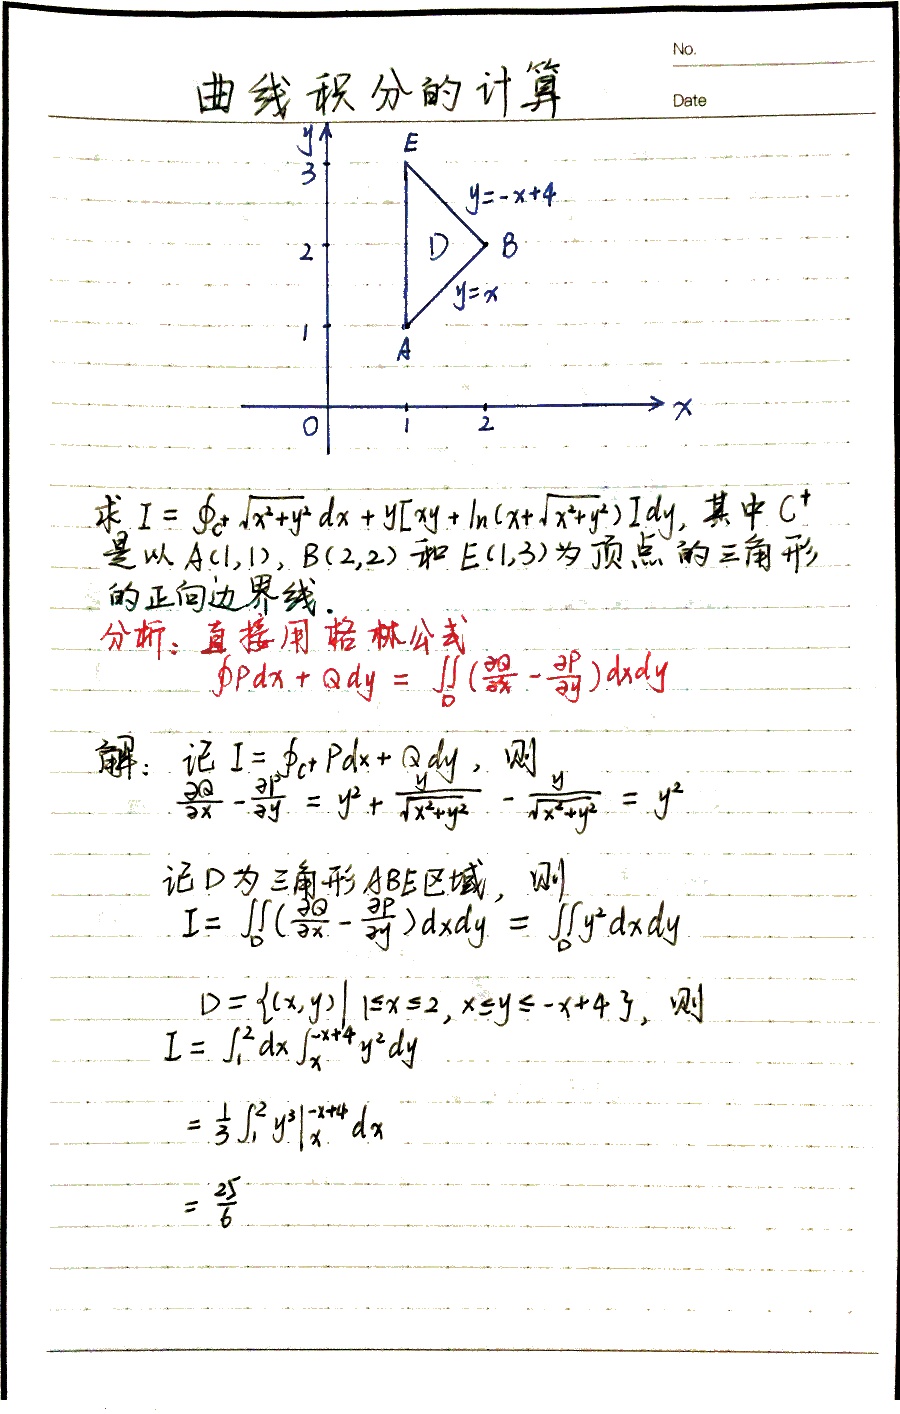 No.
曲线积分的计算
Date
y
E
3
y=-x+4
2
D
B
y=x
1
A
0
1
2
x
求 I = ∮_{C⁺} √(x²+y²) dx + y[xy + ln(x+√(x²+y²))]dy, 其中 C⁺
是以 A(1,1), B(2,2) 和 E(1,3)为顶点的三角形
的正向边界线.
分析: 直接用格林公式
∮Pdx + Qdy = ∬_D (∂Q/∂x - ∂P/∂y)dxdy
解: 记 I = ∮_{C⁺} Pdx + Qdy, 则
∂Q/∂x - ∂P/∂y = y² + y/√(x²+y²) - y/√(x²+y²) = y²
记D为三角形ABE区域, 则
I = ∬_D (∂Q/∂x - ∂P/∂y)dxdy = ∬_D y²dxdy
D = {(x,y)| 1≤x≤2, x≤y≤-x+4}, 则
I = ∫₁² dx ∫ₓ^{-x+4} y²dy
= 1/3 ∫₁² y³|ₓ^{-x+4} dx
= 25/6